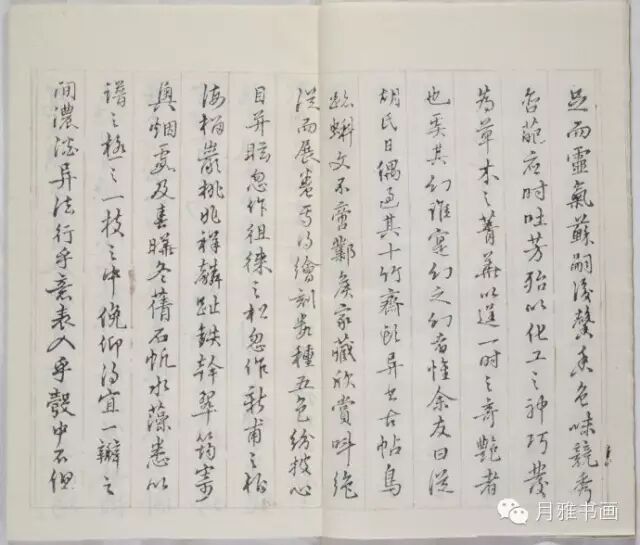 足而靈氣蘇嗣後馨香色味競秀
含葩应时吐芳殆以化工之神巧發
為草木之菁華以逞一时之奇艷者
也奚其幻谁寔幻之幻者惟余友曰從
胡氏日偶過其十竹齋頗异书古帖鳥
跡蝌文不啻鄴矦家藏欣賞叫绝
從而展卷焉乃繪刻種五色紛披心
目并眩忽作徂徠之松忽作新甫之柏
海榴巖桃兆祥麟趾鉄幹翠筠寄
興烟霞及春曦冬蒨石帆水藻悉以
譜之極之一枝之中俛仰得宜一瓣之
间濃淡异法行乎意表入乎彀中不但
月雅书画